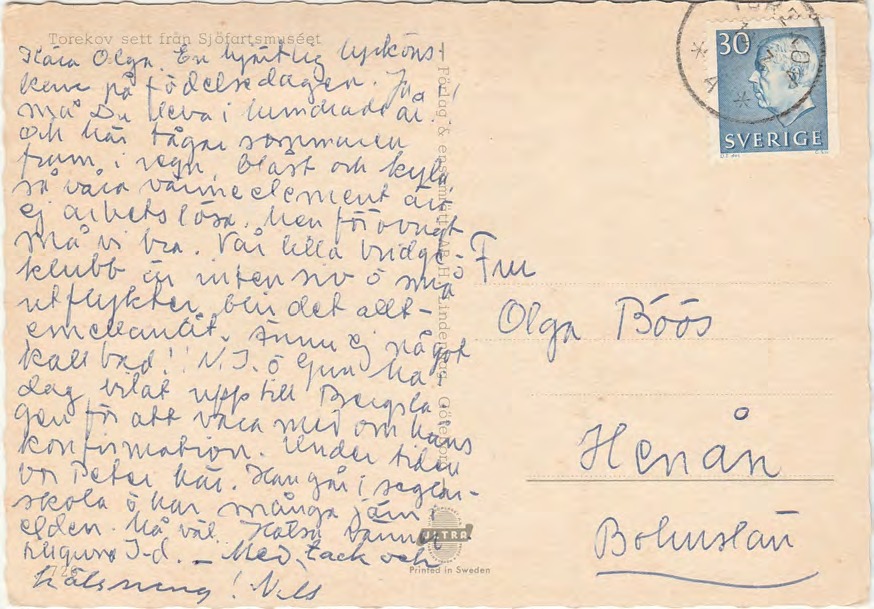 Torekov sett från Sjöfartsmuséet
Kära Olga. En hjärtlig lycköns-
kan på födelsedagen. Ja
må Du leva i hundrade år!
Och här tågar sommaren
fram i regn, blåst och kyla,
så våra värmeelement är
ej arbetslösa. Men för övrigt
må vi bra. Vår lilla bridge-
klubb är intensiv o små
utflykter blir det allt-
emellanåt. Ännu ej något
kallbad! N.I. o Gun ha i
dag bilat upp till Bergsla-
gen för att vara med om hans
konfirmation. Under tiden
bor Peter här. Han går i seglar-
skola o har många järn i
elden. Må väl. Hälsa
I-d. – Med tack och
hälsning! Nils
Förlag & ensamrätt AB H. Lindenhag, Göteborg
ULTRA
Printed in Sweden
30
SVERIGE
TOREKOV
Fru
Olga Böös
Henån
Bohuslän